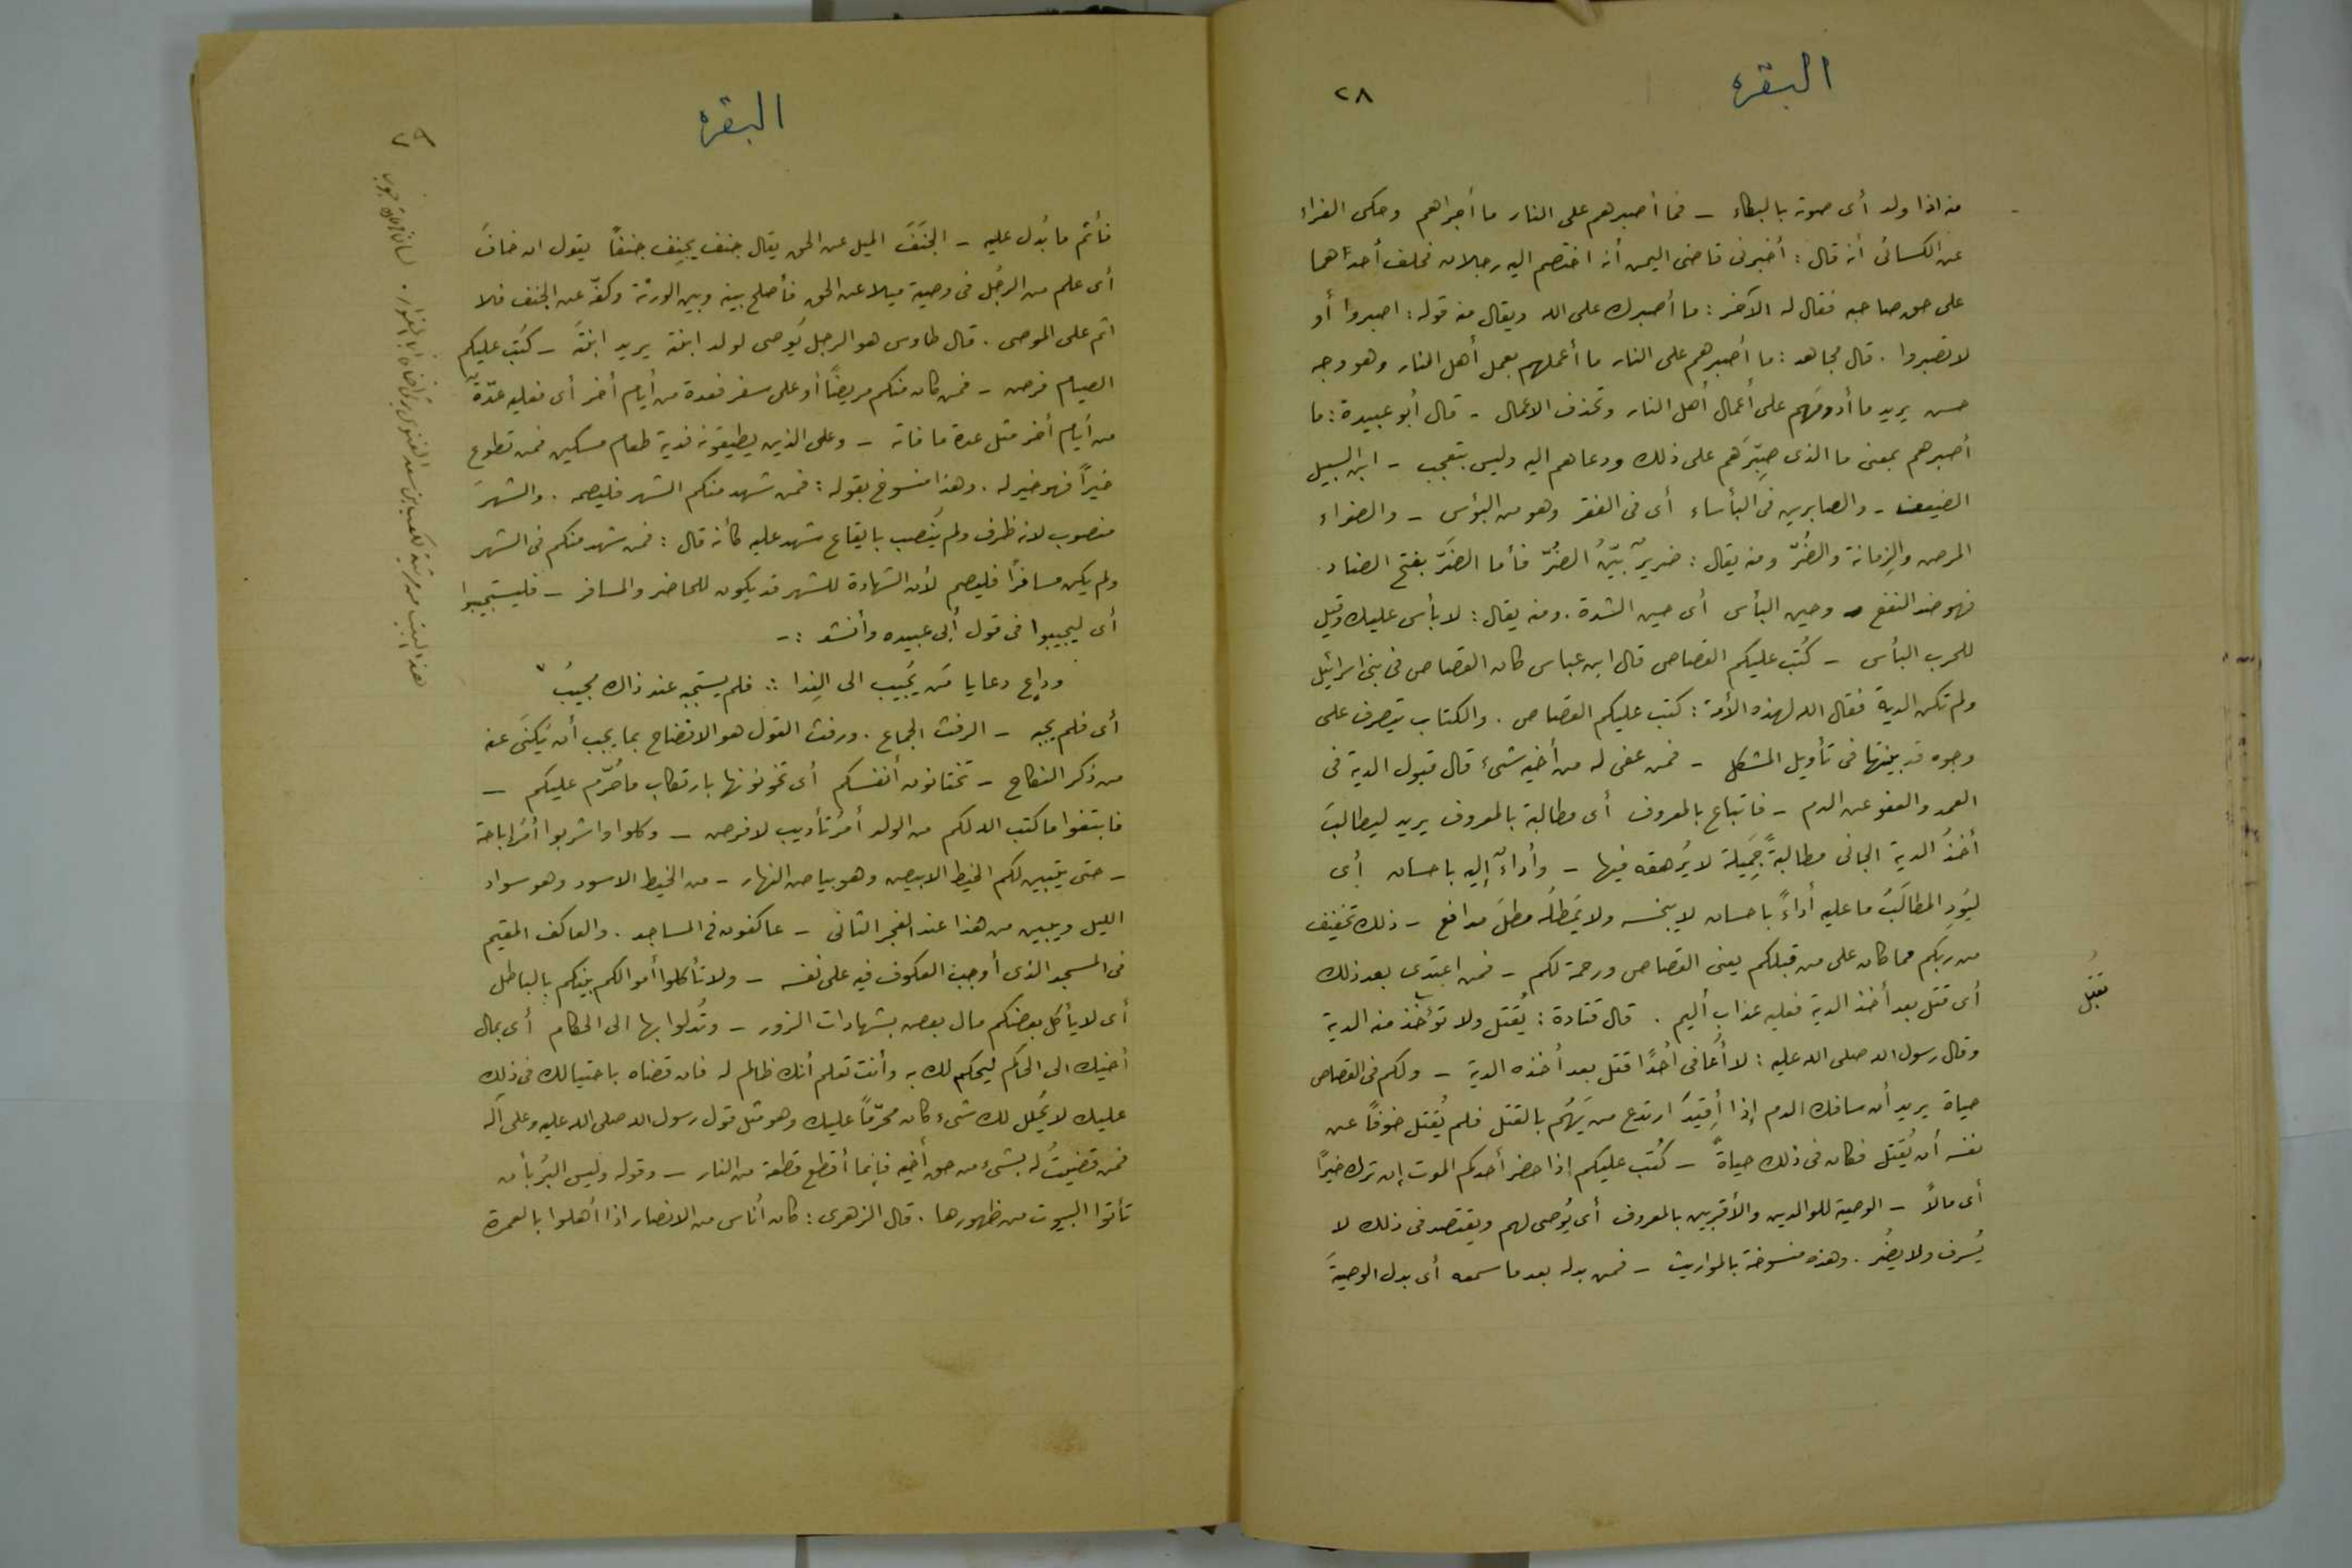 البقره
٢٨
منه اذا ولد أى صوته بالبكاء - فما أصبرهم على النار ما أجراهم وحكى الفراء
عن الكسائى أنه قال : أخبرنى قاضى اليمن أنه اختصم اليه رجلان فحلف أحدهما
على حق صاحبه فقال له الآخر : ما أصبرك على الله ويقال منه قوله : اصبروا أو
لا تصبروا . قال مجاهد : ما أصبرهم على النار ما أعملهم بعمل أهل النار وهو وجه
حسن يريد ما أدومَهم على أعمال أهل النار وتحذف الاعمال - قال أبو عبيدة : ما
أصبرهم بمعنى ما الذى صبّرَهم على ذلك ودعاهم اليه وليس بتعجب - ابن السبيل
الضيف - والصابرين فى البأساء أى فى الفقر وهو من البؤس - والضراء
المرض والزِمانة والضُرّ ومنه يقال : ضريرٌ بيّنُ الضُرّ فأما الضَرّ بفتح الضاد .
فهو ضد النفع - وحين البأس أى حين الشدة . ومنه يقال : لا بأس عليك وقيل
للحرب البأس - كُتب عليكم القصاص قال ابن عباس كان القصاص فى بنى اسرائيل
ولم تكن الدية فقال الله لهذه الأمة : كتب عليكم القصاص . والكتاب يتصرف على
وجوه قد بينتها فى تأويل المشكل - فمن عفى له من أخيه شىء قال قبول الدية فى
العمد والعفو عن الدم - فاتباع بالمعروف أى مطالبة بالمعروف يريد ليطالبَ
أخذُ الدية الجانى مطالبةً جميلة لا يُرهقه فيها - وأداءٌ إليه باحسان أى
ليُوَدِ المطالَبُ ما عليه أداءً باحسان لا يبخسه ولا يَمطُله مطلَ مدافع - ذلك تخفيف
من ربكم مما كان على من قبلكم يعنى القصاص ورحمة لكم - فمن اعتدى بعد ذلك
أى قتل بعد أخذ الدية فعليه عذاب أليم . قال قتادة : يُقتل ولا تؤخذ منه الدية
تقبل
وقال رسول الله صلى الله عليه : لا أُعافى أحدًا قتل بعد أخذه الدية - ولكم فى القصاص
حياة يريد أن سافك الدم إذا أُقيدَ ارتدع من يَهُم بالقتل فلم يُقتل خوفًا عن
نفسه أن يُقتل فكان فى ذلك حياةٌ - كُتب عليكم إذا حضر أحدكم الموت إن ترك خيرًا
أى مالاً - الوصية للوالدين والأقربين بالمعروف أى يُوصى لهم ويقتصد فى ذلك لا
يُسرف ولا يضُر . وهذه منسوخة بالمواريث - فمن بدله بعد ما سمعه أى بدل الوصيةَ
البقره
٢٩
فأثم ما بُدل عليه - الجنَفَ الميل عن الحق يقال جنف يجنِف جنفًا يقول ان خافَ
أى علم من الرجُل فى وصيته ميلا عن الحق فأصلح بينه وبين الورثة وكفّه عن الجنف فلا
اثم على الموصى . قال طاوس هو الرجل يُوصى لولد ابنته يريد ابنتَه - كتب عليكم
الصيام فرض - فمن كان منكم مريضًا أو على سفر فعدة من أيام أخر أى فعليه عدّةٌ
من أيام أخر مثل عدة ما فاته - وعلى الذين يطيقونه فدية طعام مسكين فمن تطوع
خيرًا فهو خير له . وهذا منسوخ بقوله : فمن شهد منكم الشهر فليصمه . والشهرَ
منصوب لانه ظرف ولم يُنصب بايقاع شهد عليه كأنه قال : فمن شهد منكم فى الشهر
ولم يكن مسافرًا فليصم لأن الشهادة للشهر قد يكون للحاضر والمسافر - فليستجيبوا
أى ليجيبوا فى قول أبى عبيده وأنشد :-
وداعٍ دعايا من يُجيب الى النِدا :: فلم يستجبه عند ذاك مُجيبُ
أى فلم يجبه - الرفث الجماع . ورفث القول هو الافضاح بما يجب أن يُكنَى عنه
من ذكر النكاح - تختانون أنفسكم أى تخونونها بارتكاب ما حُرّم عليكم -
فابتغوا ما كتب الله لكم من الولد أمرُ تأديب لا فرض - وكلوا واشربوا أمرُ اباحة
- حتى يتبين لكم الخيط الابيض وهو بياض النهار - من الخيط الاسود وهو سواد
الليل ويبين من هذا عند الفجر الثانى - عاكفون فى المساجد . والعاكف المقيم
فى المسجد الذى أوجب العكوف فيه على نفسه - ولا تأكلوا أموالكم بينكم بالباطل
أى لا يأكل بعضكم مال بعض بشهادات الزور - وتُدلوا بها الى الحكام أى بمال
أخيك الى الحاكم ليحكم لك به وأنت تعلم أنك ظالم له فان قضاه باحتيالك فى ذلك
عليك لا يُحلل لك شىء كان محرّمًا عليك وهو مثل قول رسول الله صلى الله عليه وعلى آله
فمن قضيتُ له بشىء من حق أخيه فإنما أقطع قطعة من النار - وقوله وليس البرُ بأن
تأتوا البيوت من ظهورها . قال الزهرى : كان أناس من الانصار اذا أهلوا بالعمرة
هذا البيت من مرثية لكعب بن سعد الغنوى يرثى أخاه أبا المغوار .